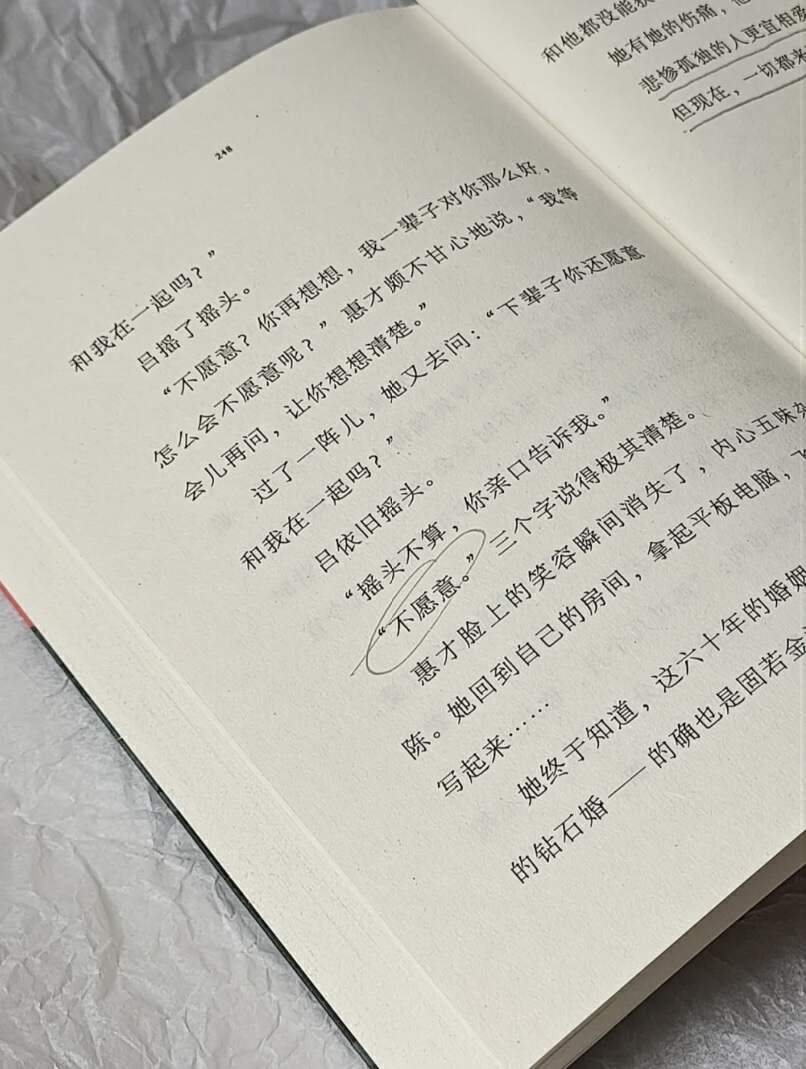 248
和我在一起吗？”
吕摇了摇头。
“不愿意？你再想想，我一辈子对你那么好，
怎么会不愿意呢？”惠才颇不甘心地说，“我等
会儿再问，让你想想清楚。”
过了一阵儿，她又去问：“下辈子你还愿意
和我在一起吗？”
吕依旧摇头。
“摇头不算，你亲口告诉我。”
“不愿意。”三个字说得极其清楚。
惠才脸上的笑容瞬间消失了，内心五味杂
陈。她回到自己的房间，拿起平板电脑，飞
写起来……
她终于知道，这六十年的婚姻
的钻石婚——的确也是固若金
和他都没能
她有她的伤痛，
悲惨孤独的人更宜相
但现在，一切都来